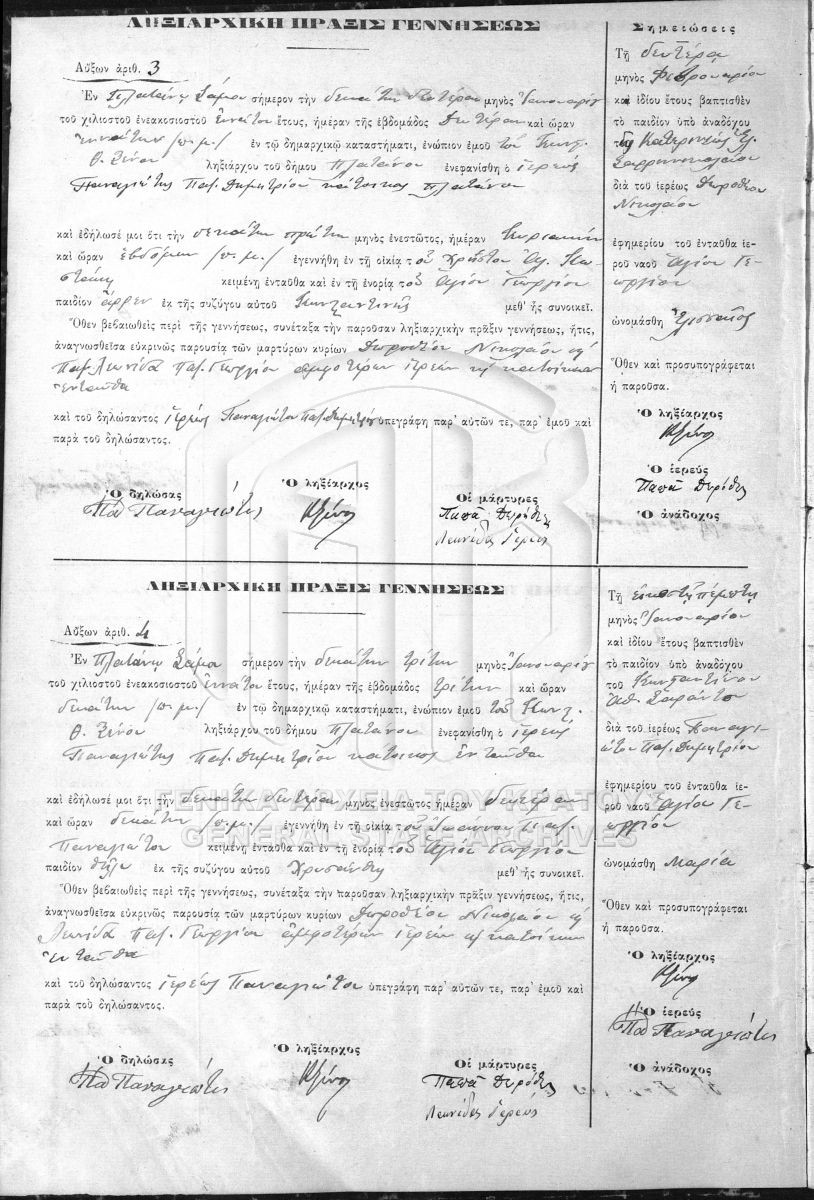 ΛΗΞΙΑΡΧΙΚΗ ΠΡΑΞΙΣ ΓΕΝΝΗΣΕΩΣ
Αὔξων ἀριθ. 3
Ἐν Πλατάνῳ Σάμου σήμερον τὴν δεκάτην δευτέραν μηνὸς Ἰανουαρίου
τοῦ χιλιοστοῦ ἐνεακοσιοστοῦ ἐννάτου ἔτους, ἡμέραν τῆς ἑβδομάδος Δευτέραν καὶ ὥραν
ἐννάτην /π.μ./ ἐν τῷ δημαρχικῷ καταστήματι, ἐνώπιον ἐμοῦ τοῦ Κωνζ.
Θ. Ξένου ληξιάρχου τοῦ δήμου Πλατάνου ἐνεφανίσθη ὁ ἱερεὺς
Παναγιώτης Παπ. Δημητρίου κάτοικος Πλατάνου
καὶ ἐδήλωσέ μοι ὅτι τὴν δεκάτην πρώτην μηνὸς ἐνεστῶτος, ἡμέραν Κυριακὴν
καὶ ὥραν ἑβδόμην /π.μ./ ἐγεννήθη ἐν τῇ οἰκίᾳ τοῦ Χρήστου
κειμένῃ ἐνταῦθα καὶ ἐν τῇ ἐνορίᾳ τοῦ Ἁγίου Γεωργίου
παιδίον ἄρρεν ἐκ τῆς συζύγου αὐτοῦ Κωνσταντινιᾶς μεθ' ἧς συνοικεῖ.
Ὅθεν βεβαιωθεὶς περὶ τῆς γεννήσεως, συνέταξα τὴν παροῦσαν ληξιαρχικὴν πρᾶξιν γεννήσεως, ἥτις,
ἀναγνωσθεῖσα εὐκρινῶς παρουσίᾳ τῶν μαρτύρων κυρίων Δωροθέου Νικολάου κ
Παπ. Λεωνίδα Παπ. Γεωργίου ἀμφοτέρων ἱερέων κ κατοίκων
ἐνταῦθα
καὶ τοῦ δηλώσαντος ἱερέως Παναγιώτου Παπ. Δημητρίου ὑπεγράφη παρ' αὐτῶν τε, παρ' ἐμοῦ καὶ
παρὰ τοῦ δηλώσαντος.
Ὁ δηλώσας
Ὁ ληξίαρχος
Οἱ μάρτυρες
Πα Παναγιότις
ΚΞένος
Παπᾶ Δορόθες
Λεωνίδας Ἱερεύς
Σημειώσεις
Τῇ δευτέρᾳ
μηνὸς Φεβρουαρίου
καὶ ἰδίου ἔτους βαπτισθὲν
τὸ παιδίον ὑπὸ ἀναδόχου
διὰ τοῦ ἱερέως Δωροθέου
Νικολάου
ἐφημερίου τοῦ ἐνταῦθα ἱε-
ροῦ ναοῦ Ἁγίου Γε-
ωργίου
ὠνομάσθη Ἐλισσαῖος
Ὅθεν καὶ προσυπογράφεται
ἡ παροῦσα.
Ὁ ληξίαρχος
ΚΞένος
Ὁ ἱερεὺς
Παπᾶ Δορόθες
Ὁ ἀνάδοχος
ΛΗΞΙΑΡΧΙΚΗ ΠΡΑΞΙΣ ΓΕΝΝΗΣΕΩΣ
Αὔξων ἀριθ. 4
Ἐν Πλατάνῳ Σάμου σήμερον τὴν δεκάτην τρίτην μηνὸς Ἰανουαρίου
τοῦ χιλιοστοῦ ἐνεακοσιοστοῦ ἐννάτου ἔτους, ἡμέραν τῆς ἑβδομάδος τρίτην καὶ ὥραν
δεκάτην /π.μ./ ἐν τῷ δημαρχικῷ καταστήματι, ἐνώπιον ἐμοῦ τοῦ Κωνζ.
Θ. Ξένου ληξιάρχου τοῦ δήμου Πλατάνου ἐνεφανίσθη ὁ ἱερεὺς
Παναγιώτης Παπ. Δημητρίου κάτοικος ἐνταῦθα
καὶ ἐδήλωσέ μοι ὅτι τὴν δεκάτην δευτέραν μηνὸς ἐνεστῶτος ἡμέραν δευτέραν
καὶ ὥραν δεκάτην /π.μ./ ἐγεννήθη ἐν τῇ οἰκίᾳ τοῦ Ἰωάννου Παπ.
Παναγιώτου κειμένῃ ἐνταῦθα καὶ ἐν τῇ ἐνορίᾳ τοῦ Ἁγίου Γεωργίου
παιδίον θῆλυ ἐκ τῆς συζύγου αὐτοῦ Χρυσάνθης μεθ' ἧς συνοικεῖ.
Ὅθεν βεβαιωθεὶς περὶ τῆς γεννήσεως, συνέταξα τὴν παροῦσαν ληξιαρχικὴν πρᾶξιν γεννήσεως, ἥτις,
ἀναγνωσθεῖσα εὐκρινῶς παρουσίᾳ τῶν μαρτύρων κυρίων Δωροθέου Νικολάου κ
Λεωνίδα Παπ. Γεωργίου ἀμφοτέρων ἱερέων κ κατοίκων
ἐνταῦθα
καὶ τοῦ δηλώσαντος ἱερέως Παναγιώτου ὑπεγράφη παρ' αὐτῶν τε, παρ' ἐμοῦ καὶ
παρὰ τοῦ δηλώσαντος.
Ὁ δηλώσας
Ὁ ληξίαρχος
Οἱ μάρτυρες
Πα Παναγιότις
ΚΞένος
Παπᾶ Δορόθες
Λεωνίδας Ἱερεύς
Τῇ εἰκοστῇ πέμπτῃ
μηνὸς Ἰανουαρίου
καὶ ἰδίου ἔτους βαπτισθὲν
τὸ παιδίον ὑπὸ ἀναδόχου
τοῦ Κωνσταντίνου
Ἀθ. Σαράντου
διὰ τοῦ ἱερέως Παναγι-
ώτου Παπ. Δημητρίου
ἐφημερίου τοῦ ἐνταῦθα ἱε-
ροῦ ναοῦ Ἁγίου Γε-
ωργίου
ὠνομάσθη Μαρία
Ὅθεν καὶ προσυπογράφεται
ἡ παροῦσα.
Ὁ ληξίαρχος
ΚΞένος
Ὁ ἱερεὺς
Πα Παναγιότις
Ὁ ἀνάδοχος
ΓΕΝΙΚΑ ΑΡΧΕΙΑ ΤΟΥ ΚΡΑΤΟΥΣ
GENERAL STATE ARCHIVES